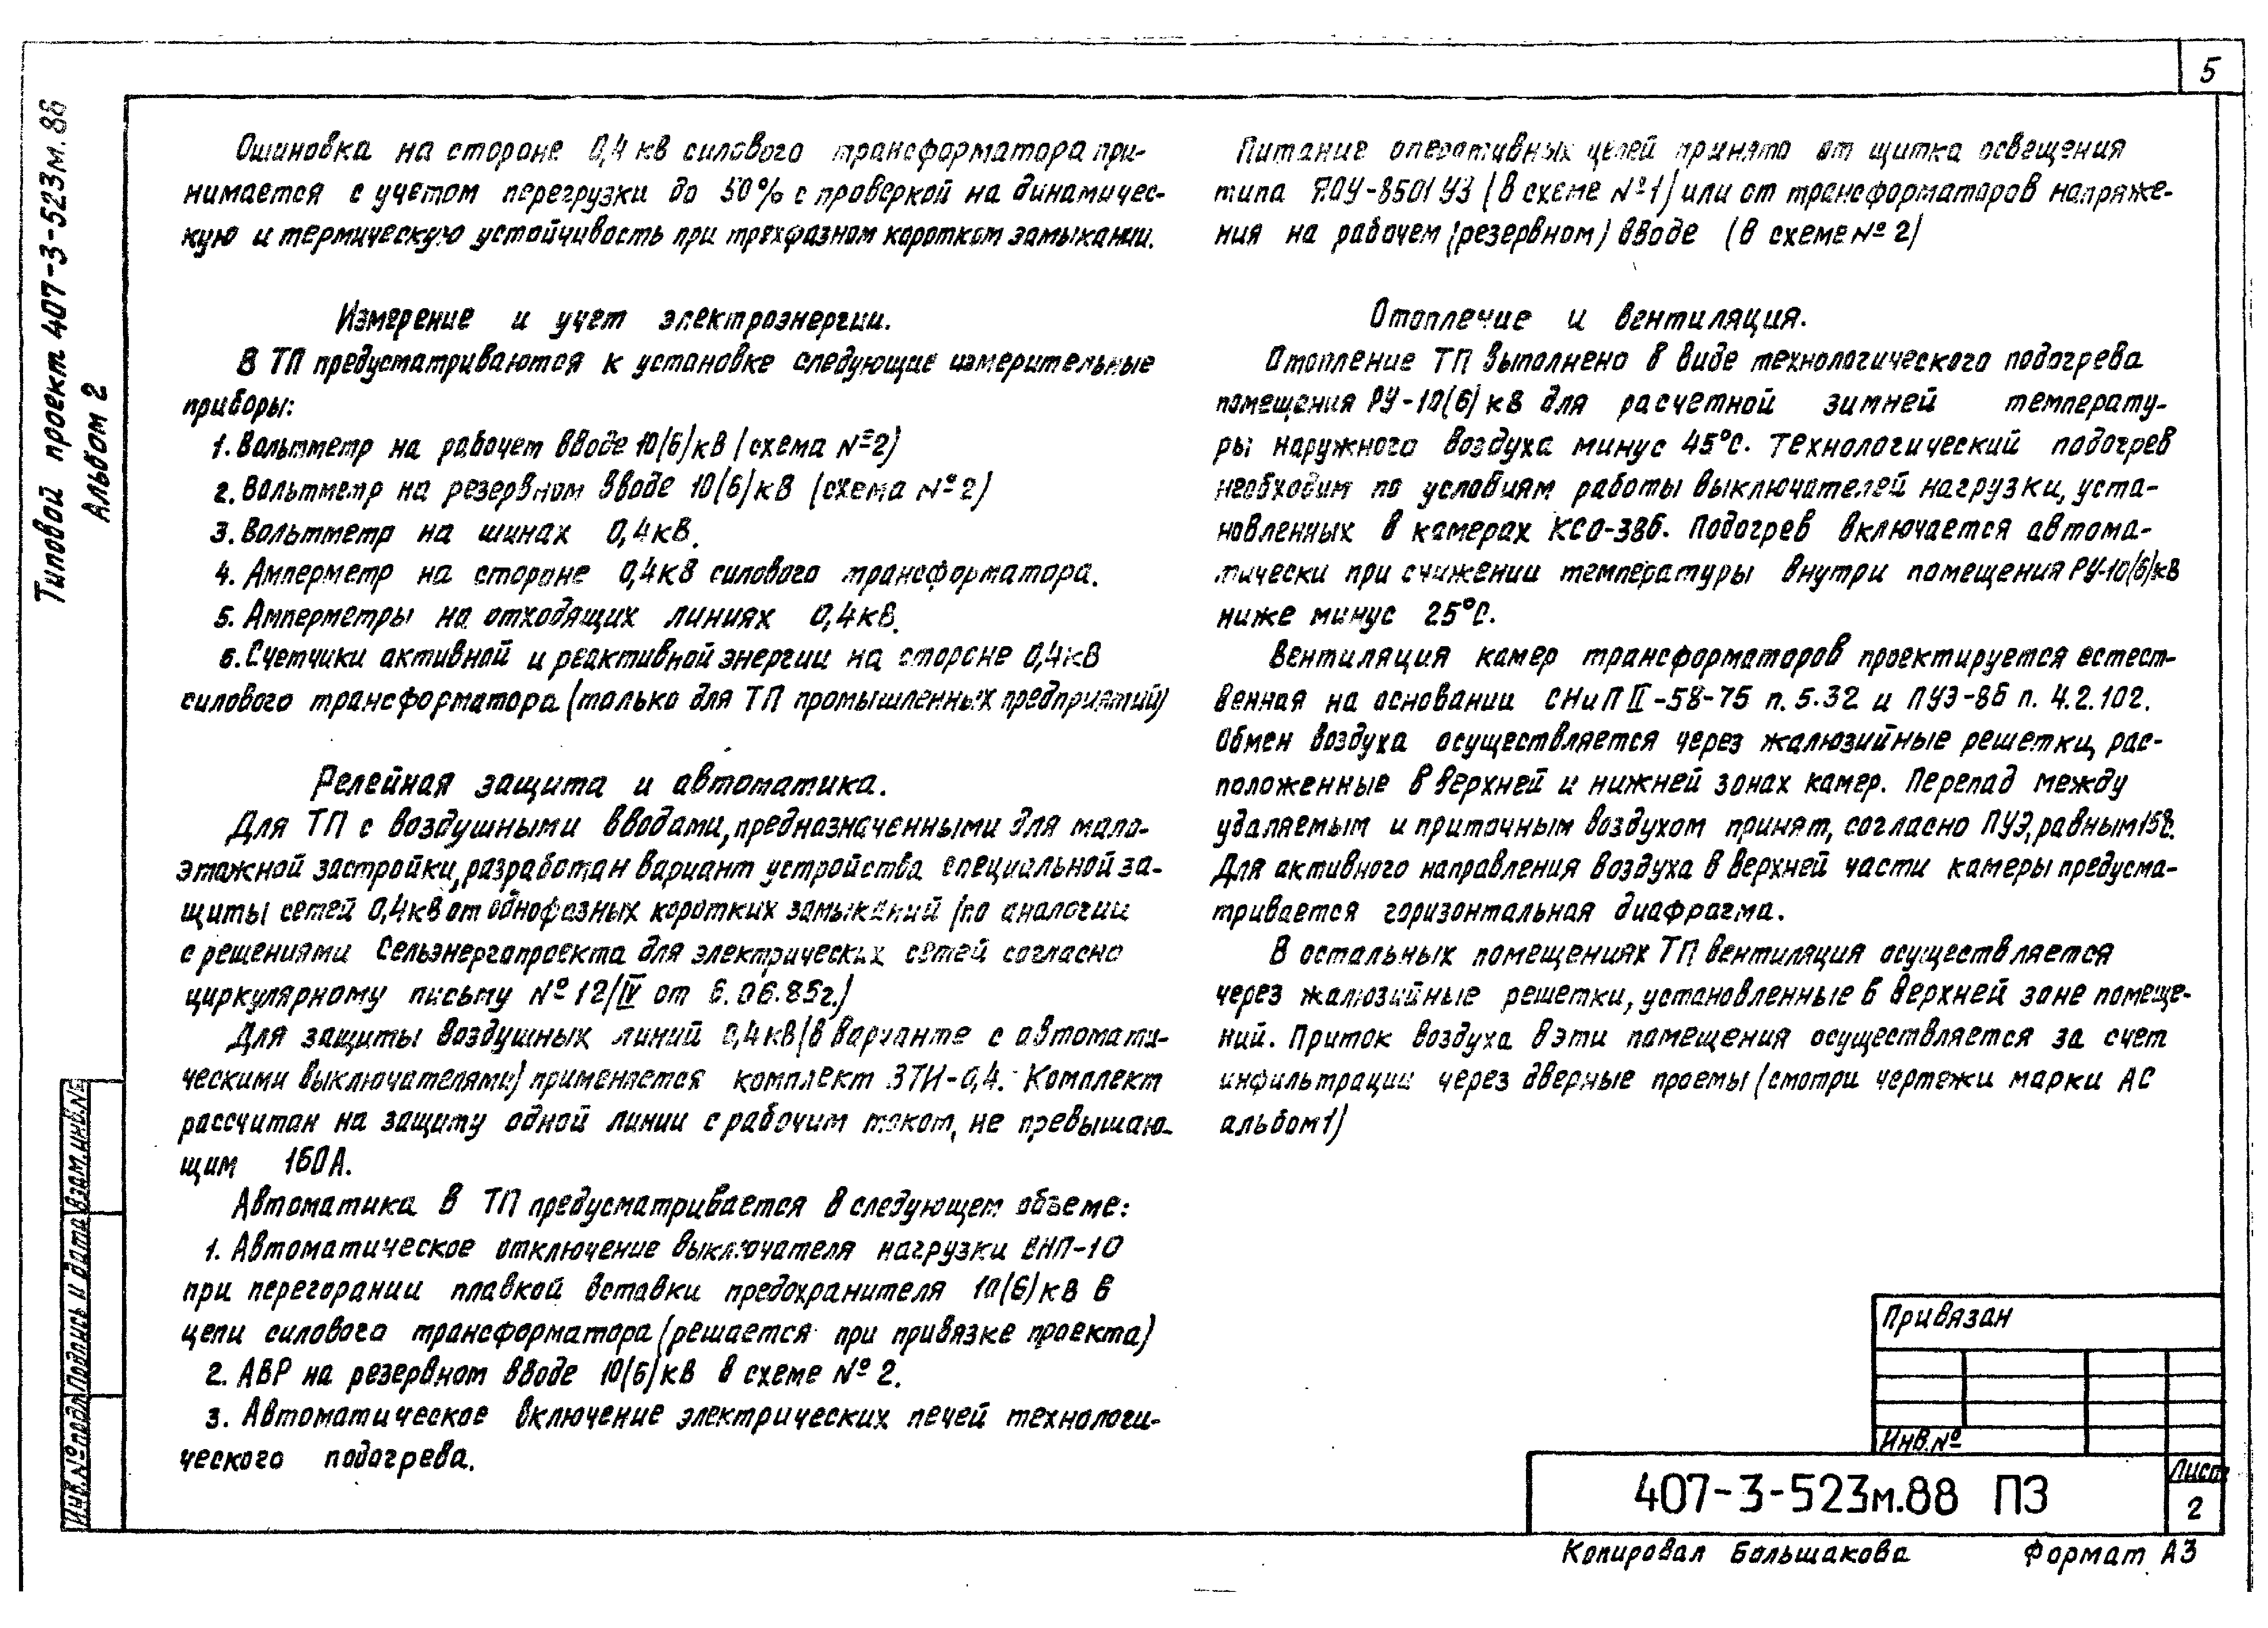 5
Типовой проект 407-3-523м.88
Альбом 2
Ошиновка на стороне 0,4 кВ силового трансформатора при-
нимается с учетом перегрузки до 50% с проверкой на динамичес-
кую и термическую устойчивость при трехфазном коротком замыкании.
Измерение и учет электроэнергии.
В ТП предусматриваются к установке следующие измерительные
приборы:
1. Вольтметр на рабочем вводе 10(6)кВ (схема №2)
2. Вольтметр на резервном вводе 10(6)кВ (схема №2)
3. Вольтметр на шинах 0,4кВ.
4. Амперметр на стороне 0,4кВ силового трансформатора.
5. Амперметры на отходящих линиях 0,4кВ.
6. Счетчики активной и реактивной энергии на стороне 0,4кВ
силового трансформатора (только для ТП промышленных предприятий)
Релейная защита и автоматика.
Для ТП с воздушными вводами, предназначенными для мало-
этажной застройки, разработан вариант устройства специальной за-
щиты сетей 0,4кВ от однофазных коротких замыканий (по аналогии
с решениями Сельэнергопроекта для электрических сетей согласно
циркулярному письму №12/IV от 6.06.85г.)
Для защиты воздушных линий 0,4кВ (в варианте с автомати-
ческими выключателями) применяется комплект ЗТИ-0,4. Комплект
рассчитан на защиту одной линии с рабочим током, не превышаю-
щим 160А.
Автоматика в ТП предусматривается в следующем объеме:
1. Автоматическое отключение выключателя нагрузки ВНП-10
при перегорании плавкой вставки предохранителя 10(6)кВ в
цепи силового трансформатора (решается при привязке проекта)
2. АВР на резервном вводе 10(6)кВ в схеме №2.
3. Автоматическое включение электрических печей технологи-
ческого подогрева.
Питание оперативных цепей принято от щитка освещения
типа ЯОУ-8501 У3 (в схеме №1) или от трансформаторов напряже-
ния на рабочем (резервном) вводе (в схеме №2)
Отопление и вентиляция.
Отопление ТП выполнено в виде технологического подогрева
помещения РУ-10(6)кВ для расчетной зимней температу-
ры наружного воздуха минус 45°С. Технологический подогрев
необходим по условиям работы выключателей нагрузки, уста-
новленных в камерах КСО-386. Подогрев включается автома-
тически при снижении температуры внутри помещения РУ-10(6)кВ
ниже минус 25°С.
Вентиляция камер трансформаторов проектируется естест-
венная на основании СНиП II-58-75 п. 5.32 и ПУЭ-86 п. 4.2.102.
Обмен воздуха осуществляется через жалюзийные решетки, рас-
положенные в верхней и нижней зонах камер. Перепад между
удаляемым и приточным воздухом принят, согласно ПУЭ, равным
Для активного направления воздуха в верхней части камеры предусма-
тривается горизонтальная диафрагма.
В остальных помещениях ТП вентиляция осуществляется
через жалюзийные решетки, установленные в верхней зоне помеще-
ний. Приток воздуха в эти помещения осуществляется за счет
инфильтрации через дверные проемы (смотри чертежи марки АС
альбом 1)
Привязан
Инв.№
407-3-523м.88 ПЗ
Лист
2
Копировал Большакова Формат А3
Взам.инв.№
Подпись и дата
Инв.№подл.